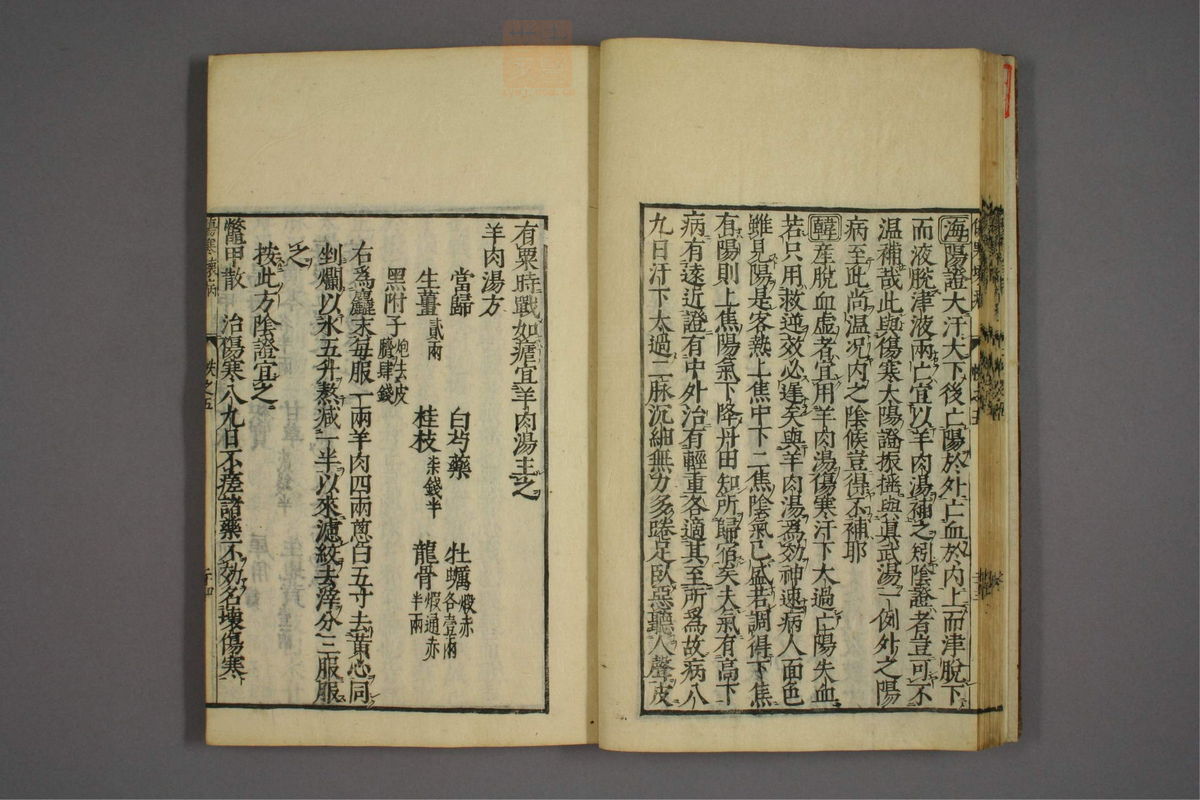 海陽證大汗大下後亡陽於外亡血於内上而津脫下
而液脫津液兩亡宜以羊肉湯補之矧陰證者豈可不
温補哉此與傷寒太陽證振搖與眞武湯一例外之陽
病至此尚温况内之陰候豈得不補耶
韓産脫血虚者宜用羊肉湯傷寒汗下太過亡陽失血
若只用救逆效必遲矣與羊肉湯爲効神速病人面色
雖見陽是客熱上焦中下二焦陰氣已盛若調得下焦
有陽則上焦陽氣下降丹田知所歸宿矣夫氣有高下
病有遠近證有中外治有輕重各適其至所爲故病八
九日汗下太過二脉沉細無力多踡足臥惡聽人聲皮
有粟時戰如瘧宜羊肉湯主之
羊肉湯方
當歸 白芍藥 牡蠣煅赤各壹兩
生薑貳兩 桂枝柒錢半 龍骨煅通赤半兩
黑附子炮去皮臍肆錢
右爲麤末每服一兩羊肉四兩蔥白五寸去黄心同
剉爛以水五升熬減一半以來濾絞去滓分三服服
之
按此方陰證宜之
鱉甲散 治傷寒八九日不瘥諸藥不効名壞傷寒
傷寒壞病 帙之五 二十四